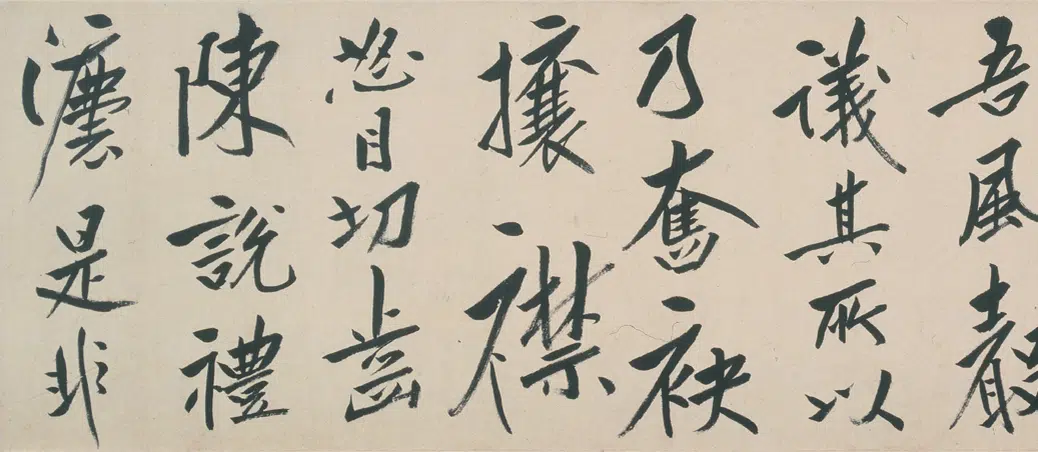 吾風聲
議其所以
乃奮袂
攘襟
怒目切齒
陳說禮
灋是非